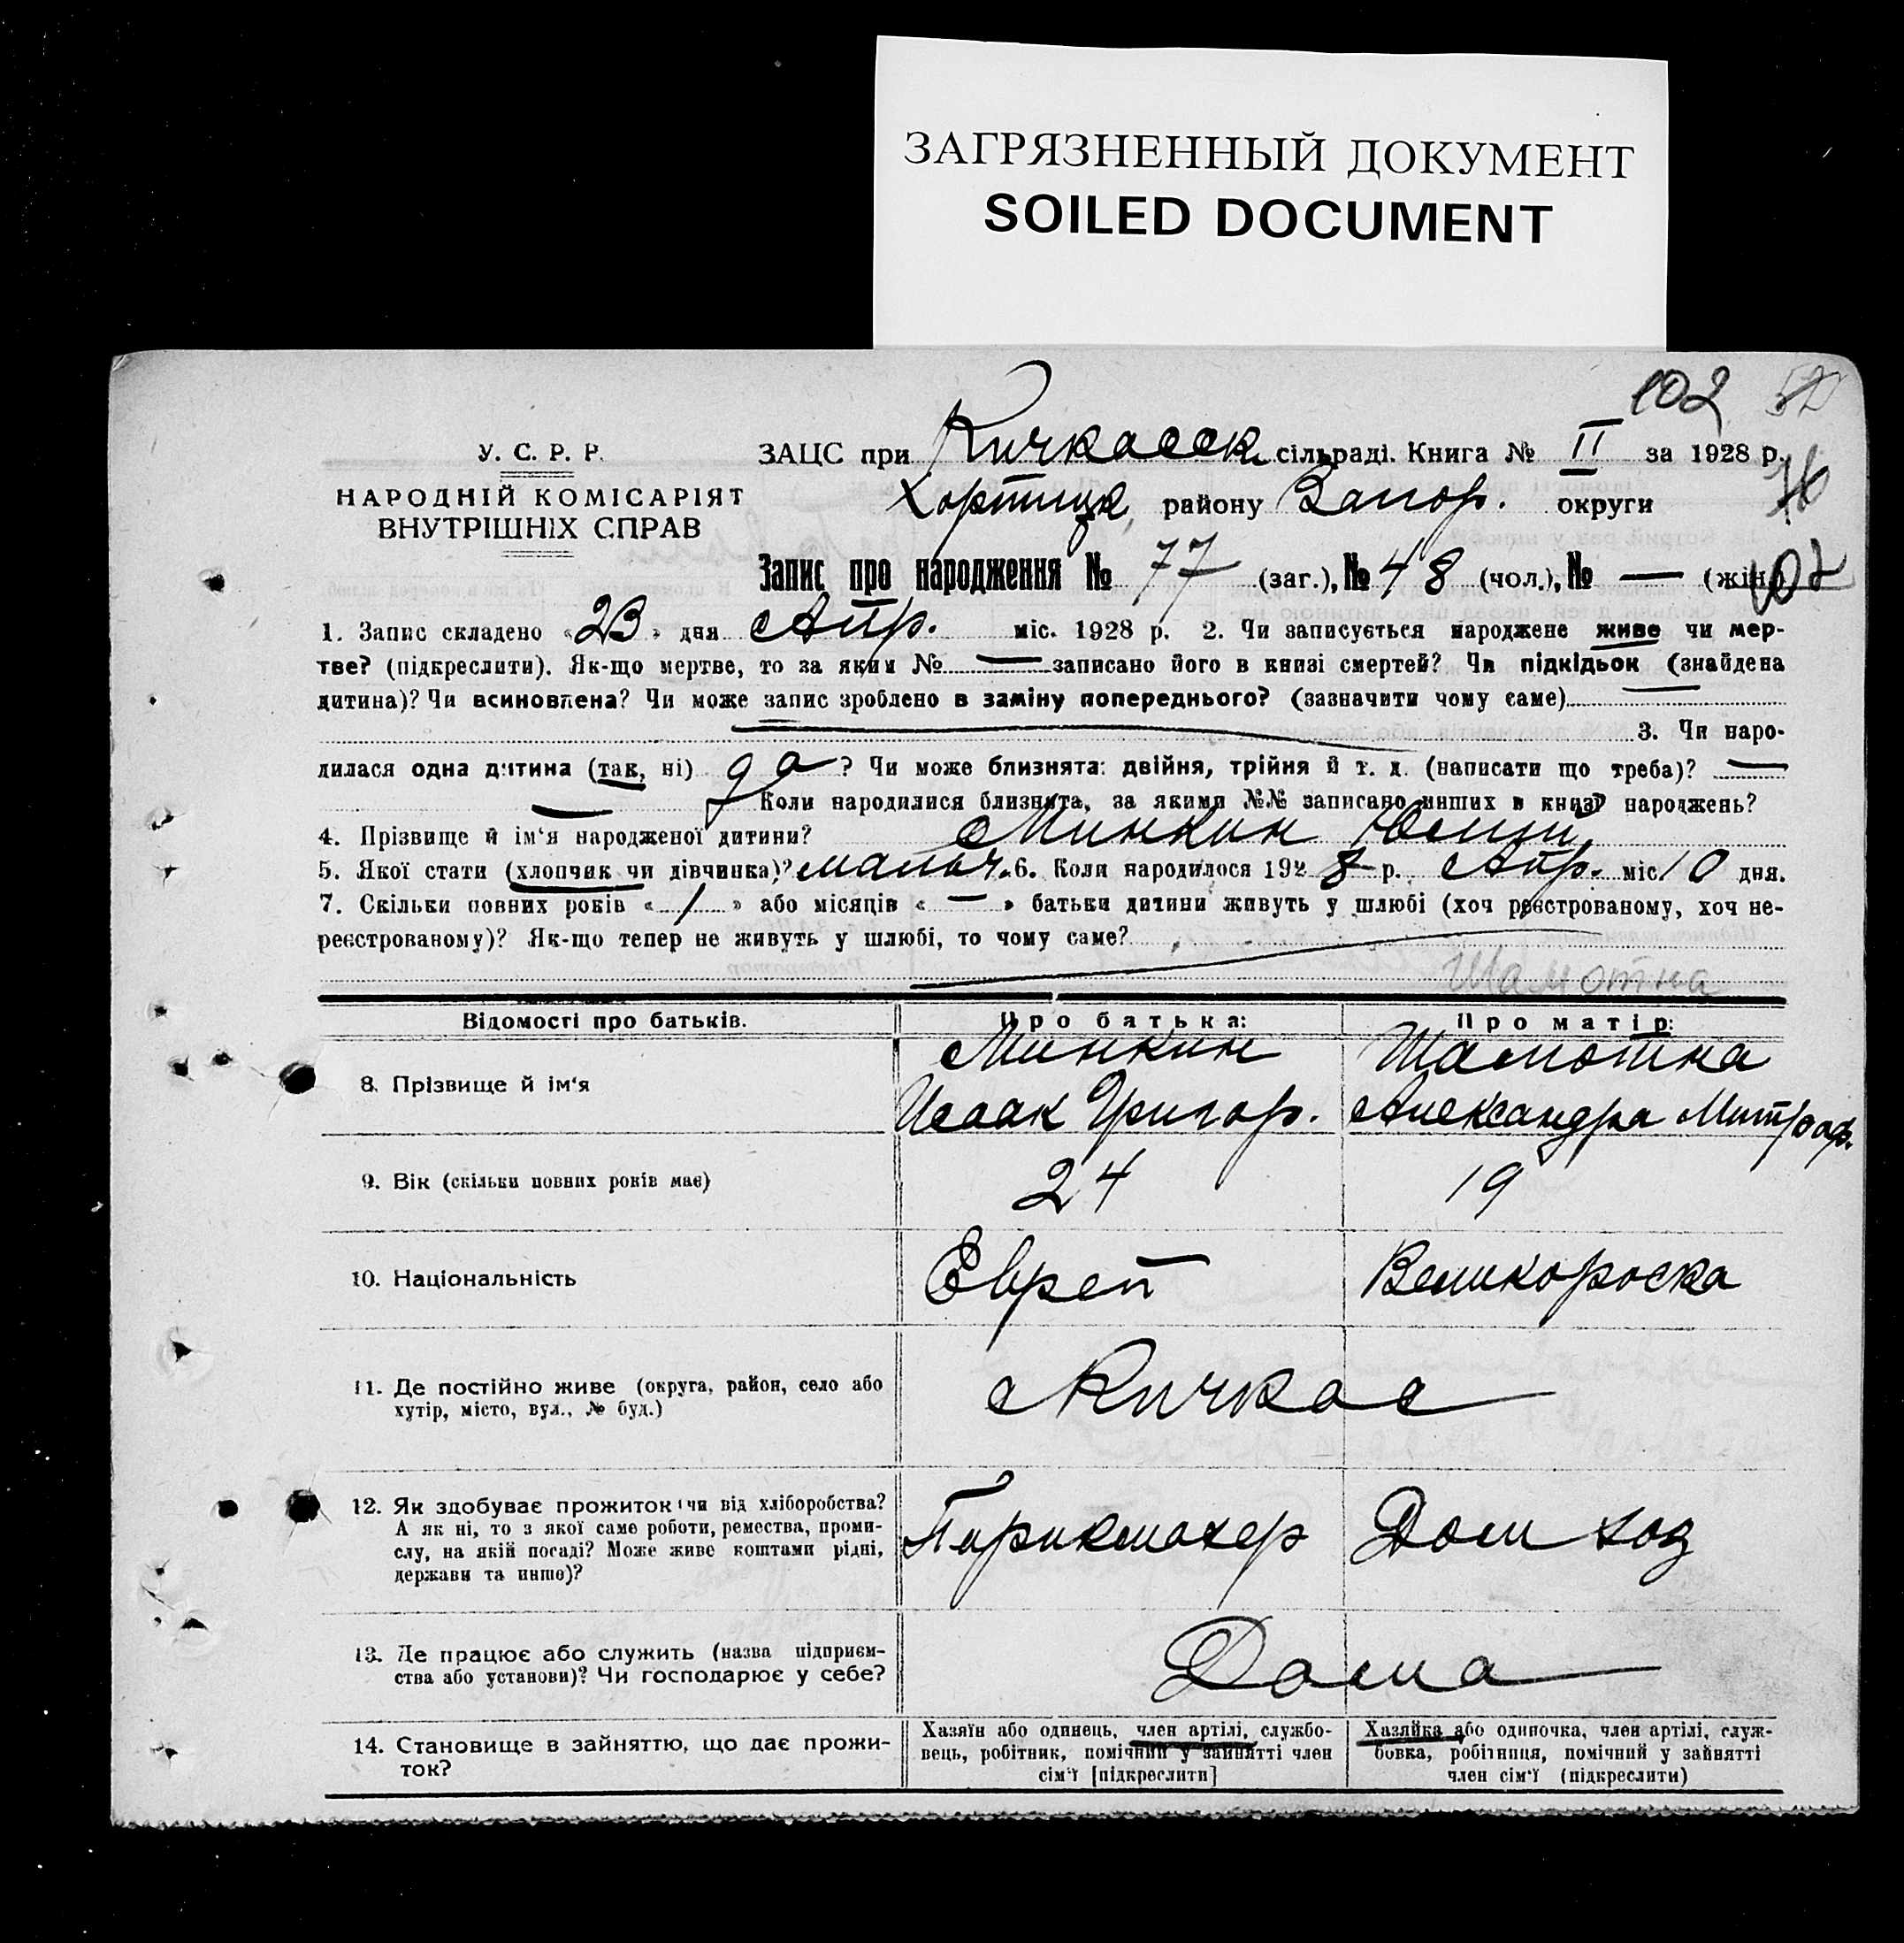 ЗАГРЯЗНЕННЫЙ ДОКУМЕНТ
SOILED DOCUMENT
102
У. С. Р. Р.
НАРОДНІЙ КОМІСАРІЯТ
ВНУТРІШНІХ СПРАВ
ЗАЦС при Кичкасск. сільраді. Книга № II за 1928 р.
Хортицк. району Запор. округи
76
Запис про народження № 77 (заг.), № 48 (чол.), № — (жін.)
102
1. Запис складено «23» дня Апр. міс. 1928 р. 2. Чи записується народжене живе чи мер-
тве? (підкреслити). Як-що мертве, то за яким № — записано його в книзі смертей? Чи підкідьок (знайдена
дитина)? Чи всиновлена? Чи може запис зроблено в заміну попереднього? (зазначити чому саме) —
3. Чи наро-
дилася одна дитина (так, ні) да ? Чи може близнята: двійня, трійня й т. д. (написати що треба)? —
— Коли народилися близнята, за якими №№ записано инших в книзі народжень?
4. Прізвище й ім'я народженої дитини? Минкин Юлий
5. Якої стати (хлопчик чи дівчинка)? мальч. 6. Коли народилося 1928 р. Апр. міс. 10 дня.
7. Скільки повних років «1» або місяців «—» батьки дитини живуть у шлюбі (хоч реєстрованому, хоч не-
реєстрованому)? Як-що тепер не живуть у шлюбі, то чому саме?
Шамотна
Відомості про батьків. Про батька: Про матір:
8. Прізвище й ім'я
Минкин
Исаак Григор.
Шамотна
Александра Митроф.
9. Вік (скільки повних років має) 24 19
10. Національність Еврей Великороска
11. Де постійно живе (округа, район, село або
хутір, місто, вул., № буд.)
с Кичкас
12. Як здобуває прожиток: чи від хліборобства?
А як ні, то з якої саме роботи, ремества, проми-
слу, на якій посаді? Може живе коштами рідні,
держави та инше)?
Парикмахер Дом хоз
13. Де працює або служить (назва підприєм-
ства або установи)? Чи господарює у себе?
Дома
14. Становище в зайняттю, що дає прожи-
ток?
Хазяїн або одинець, член артілі, службо-
вець, робітник, помічний у зайнятті член
сім'ї [підкреслити]
Хазяйка або одиночка, член артілі, служ-
бовка, робітниця, помічний у зайнятті
член сім'ї (підкреслити)